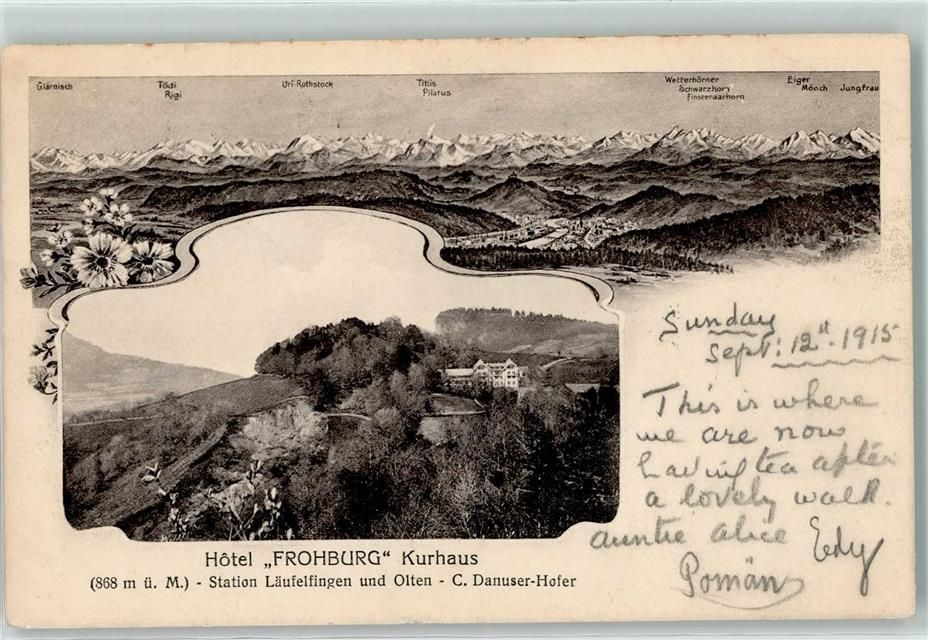 Glärnisch Tödi Uri-Rothstock Titlis Wetterhörner Eiger
Rigi Pilatus Schwarzhorn Mönch Jungfrau
Finsteraarhorn
Sunday
Sept: 12th 1915
This is where
we are now
having tea after
a lovely walk.
auntie alice Edy
Pomän
Hôtel „FROHBURG" Kurhaus
(868 m ü. M.) - Station Läufelfingen und Olten - C. Danuser-Hofer